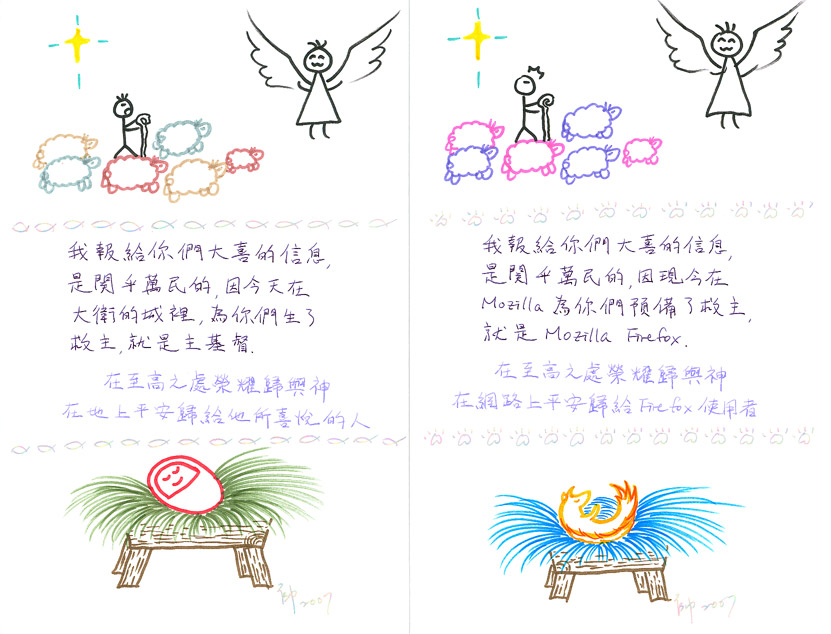 我報給你們大喜的信息,
是関千萬民的,因今天在
大衛的城裡,為你們生了
救主,就是主基督.
在至高之處榮耀歸與神
在地上平安歸給他所喜悅的人
2007
我報給你們大喜的信息,
是関千萬民的,因現今在
Mozilla為你們預備了救主,
就是 Mozilla Firefox.
在至高之處榮耀歸與神
在網路上平安歸給 Firefox 使用者
2007